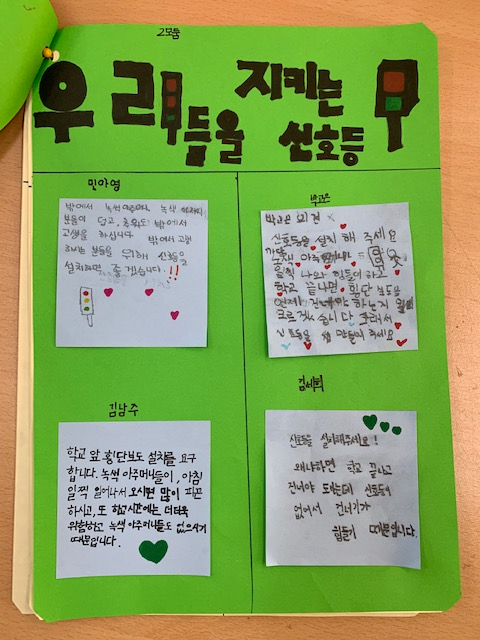 2모둠
우리들을 지키는
신호등
민아영
밖에서 녹색 녹색
보음이 덥고, 추워도 밖에서
고생을 하십니다
밖에서 고생
하시는 분들을 위해 신호등을
설치하면 좋겠습니다!!
박고은
박고은 의견
신호등을 설치 해 주세요
일찍 나와 힘들어하고
학교 끝나면 횡단보도를
언제 건너야 하는지
모르겠습니다 그래서
신호등을 만들어 주세요
김남주
학교 앞 횡단보도 설치를 요구
합니다. 녹색 아주머니들이, 아침
일찍 일어나서 오시면 많이 피곤
하시고, 또 하교시간에는 더더욱
위험하고 녹색 아주머니들도 없으시기
때문입니다.
김세희
신호등을 설치해주세요!
왜냐하면 학교 끝나고
건너야 되는데 신호등이
없어서 건너기가
힘들기 때문입니다.